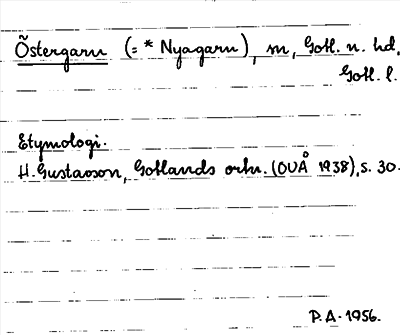 Östergarn (= * Nyagarn), m, Gotl. n. hd,
Gotl. l.
Etymologi.
H. Gustavson, Gotlands ortn. (OUÅ 1938), s. 30.
P.A. 1956.